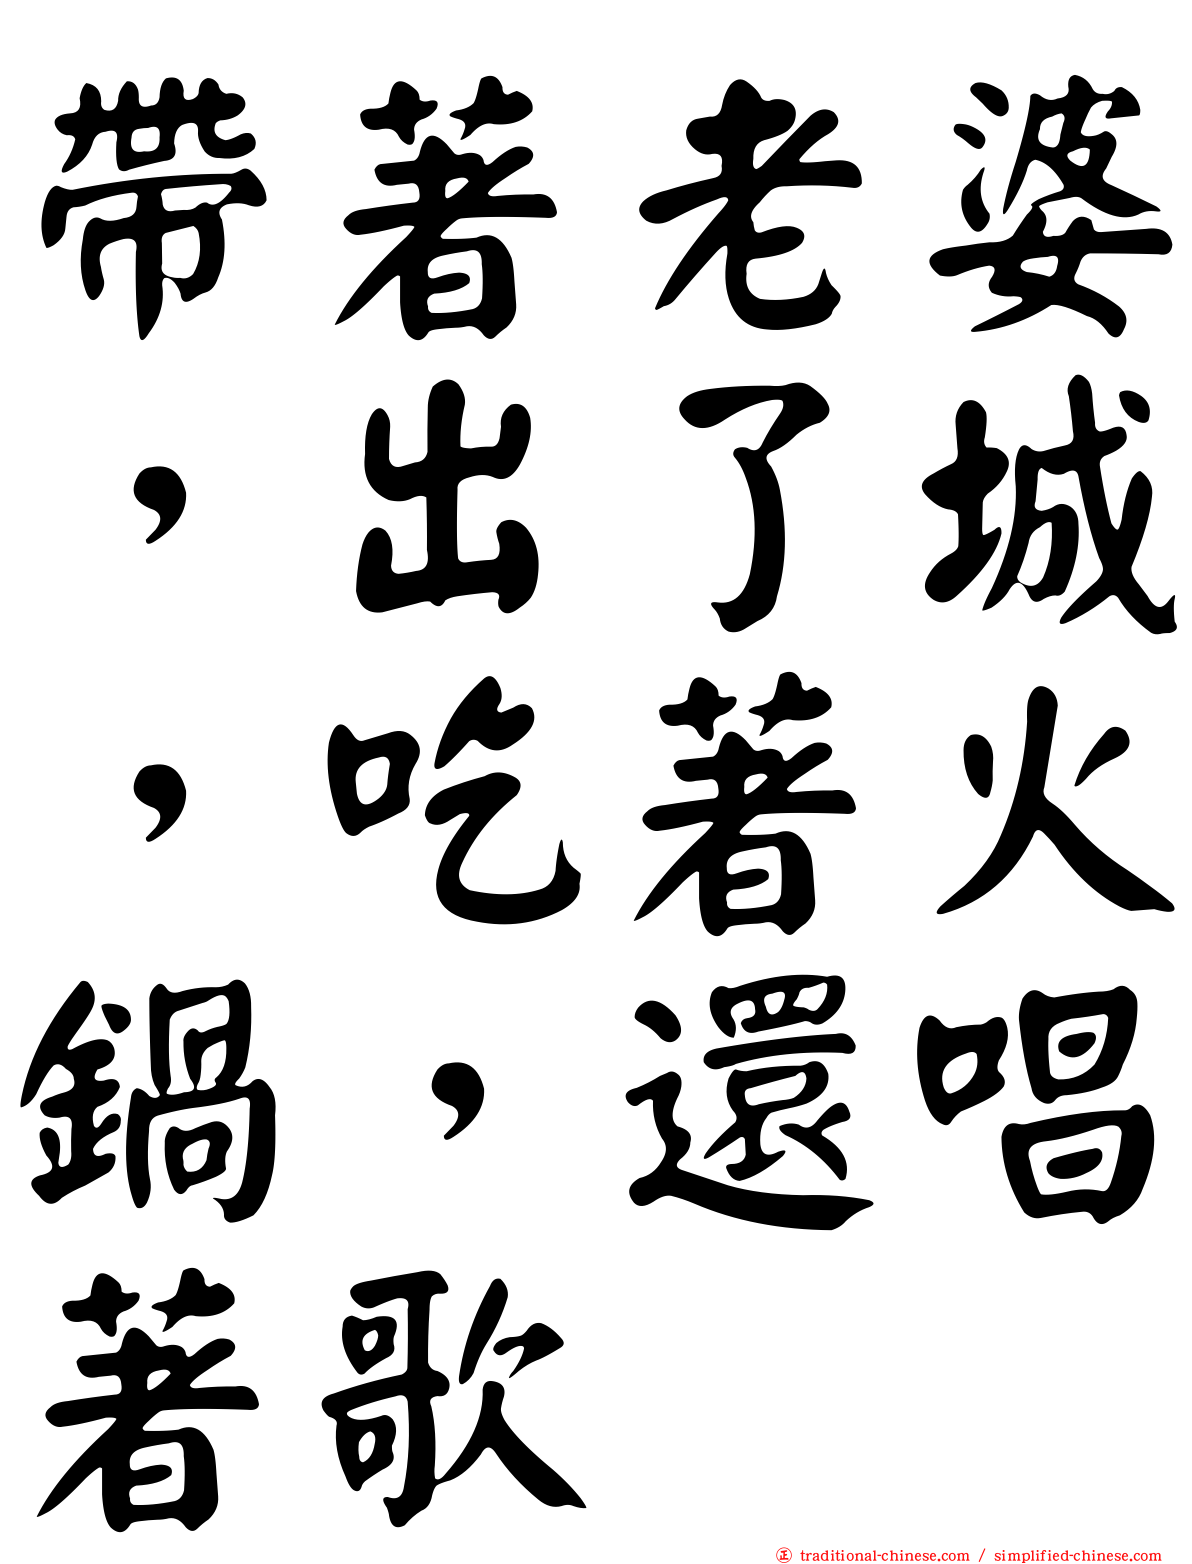 帶著老婆
，出了城
，吃著火
鍋，還唱
著歌
㊣ traditional-chinese.com / simplified-chinese.com